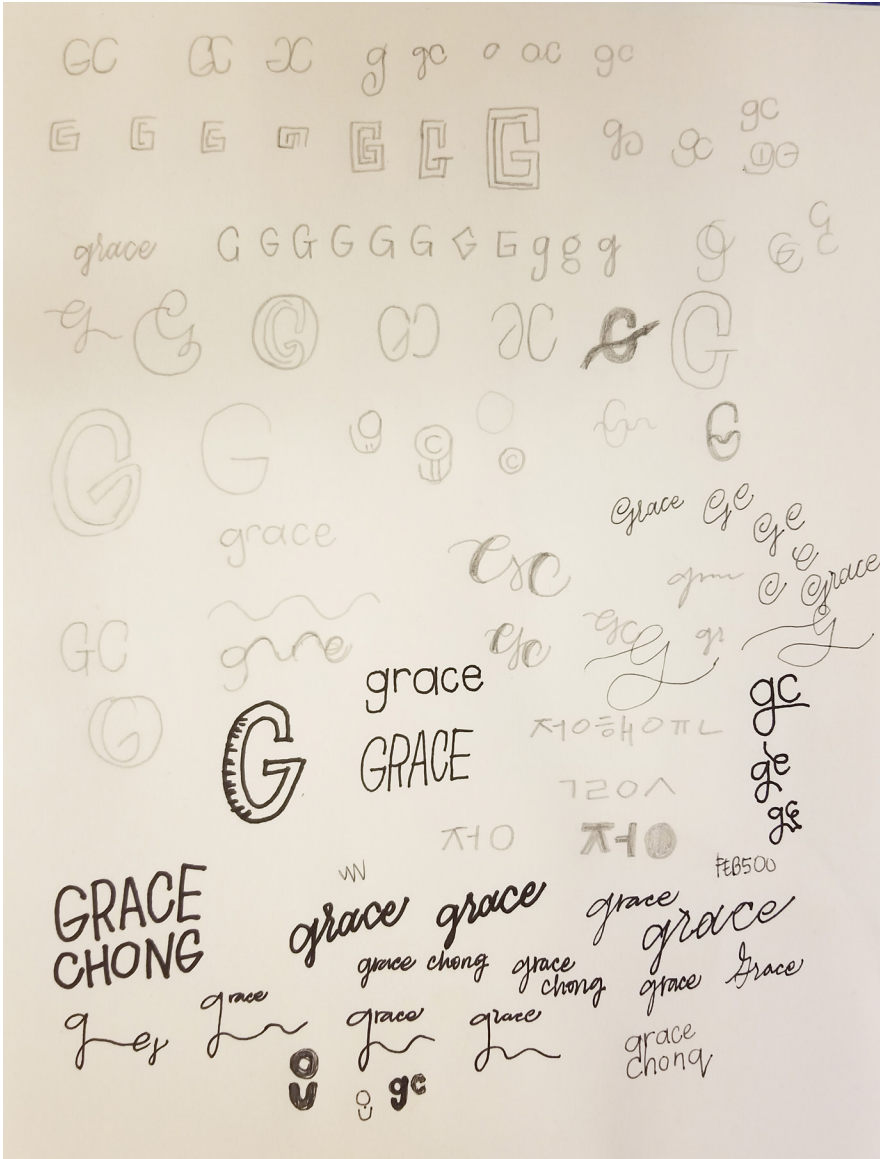 GC GC GC g gc o ac gc
G G G G G G G go gc gc
go
grace C G G G G G G G g g g g G G
C
g G G GC GC G G
G G g © G G
©
Grace Ge
Ge
grace
e
Gc gr C Grace
GC Gc Gc gr G
grace G
grace gc
G G
GRACE 저ㅇ해ㅇㅠㄴ
ge
ㄱㄹㅇㅅ
gc
저ㅇ 저ㅇ
W PEB500
GRACE
CHONG
grace grace grace
grace
grace chong grace
chong grace Grace
g er grace grace grace
grace
chong
gc